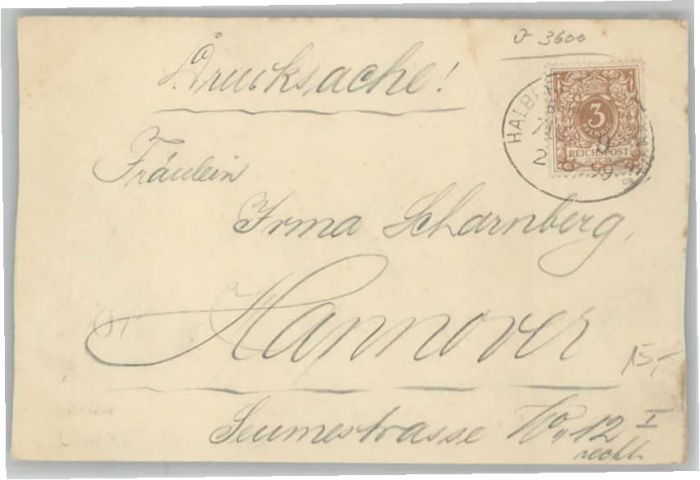 v 3600
Drucksache!
3
PFENNIG
REICHSPOST
HALBE
99
Fräulein
Irma Scharnberg,
Hannover
15,-
Seumestrasse No. 12 I
rechts